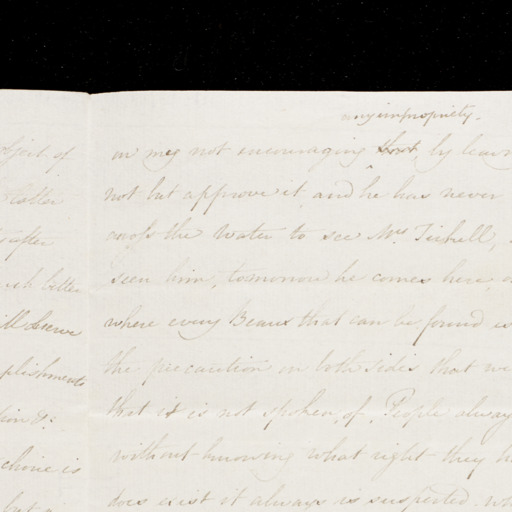 object of
latter
after
much better
will deserve
plishments
tion &c
choice is
but
any impropriety.
on my not encouraging that, by leav
not but approve it, and he has never
across the Water to see Mrs. Tickell,
seen him, tomorrow he comes here
where every Beaux that can be found is
the precaution on both sides that we
that it is not spoken of, People alway
without knowing what right they h
does exist it always is suspected. wh